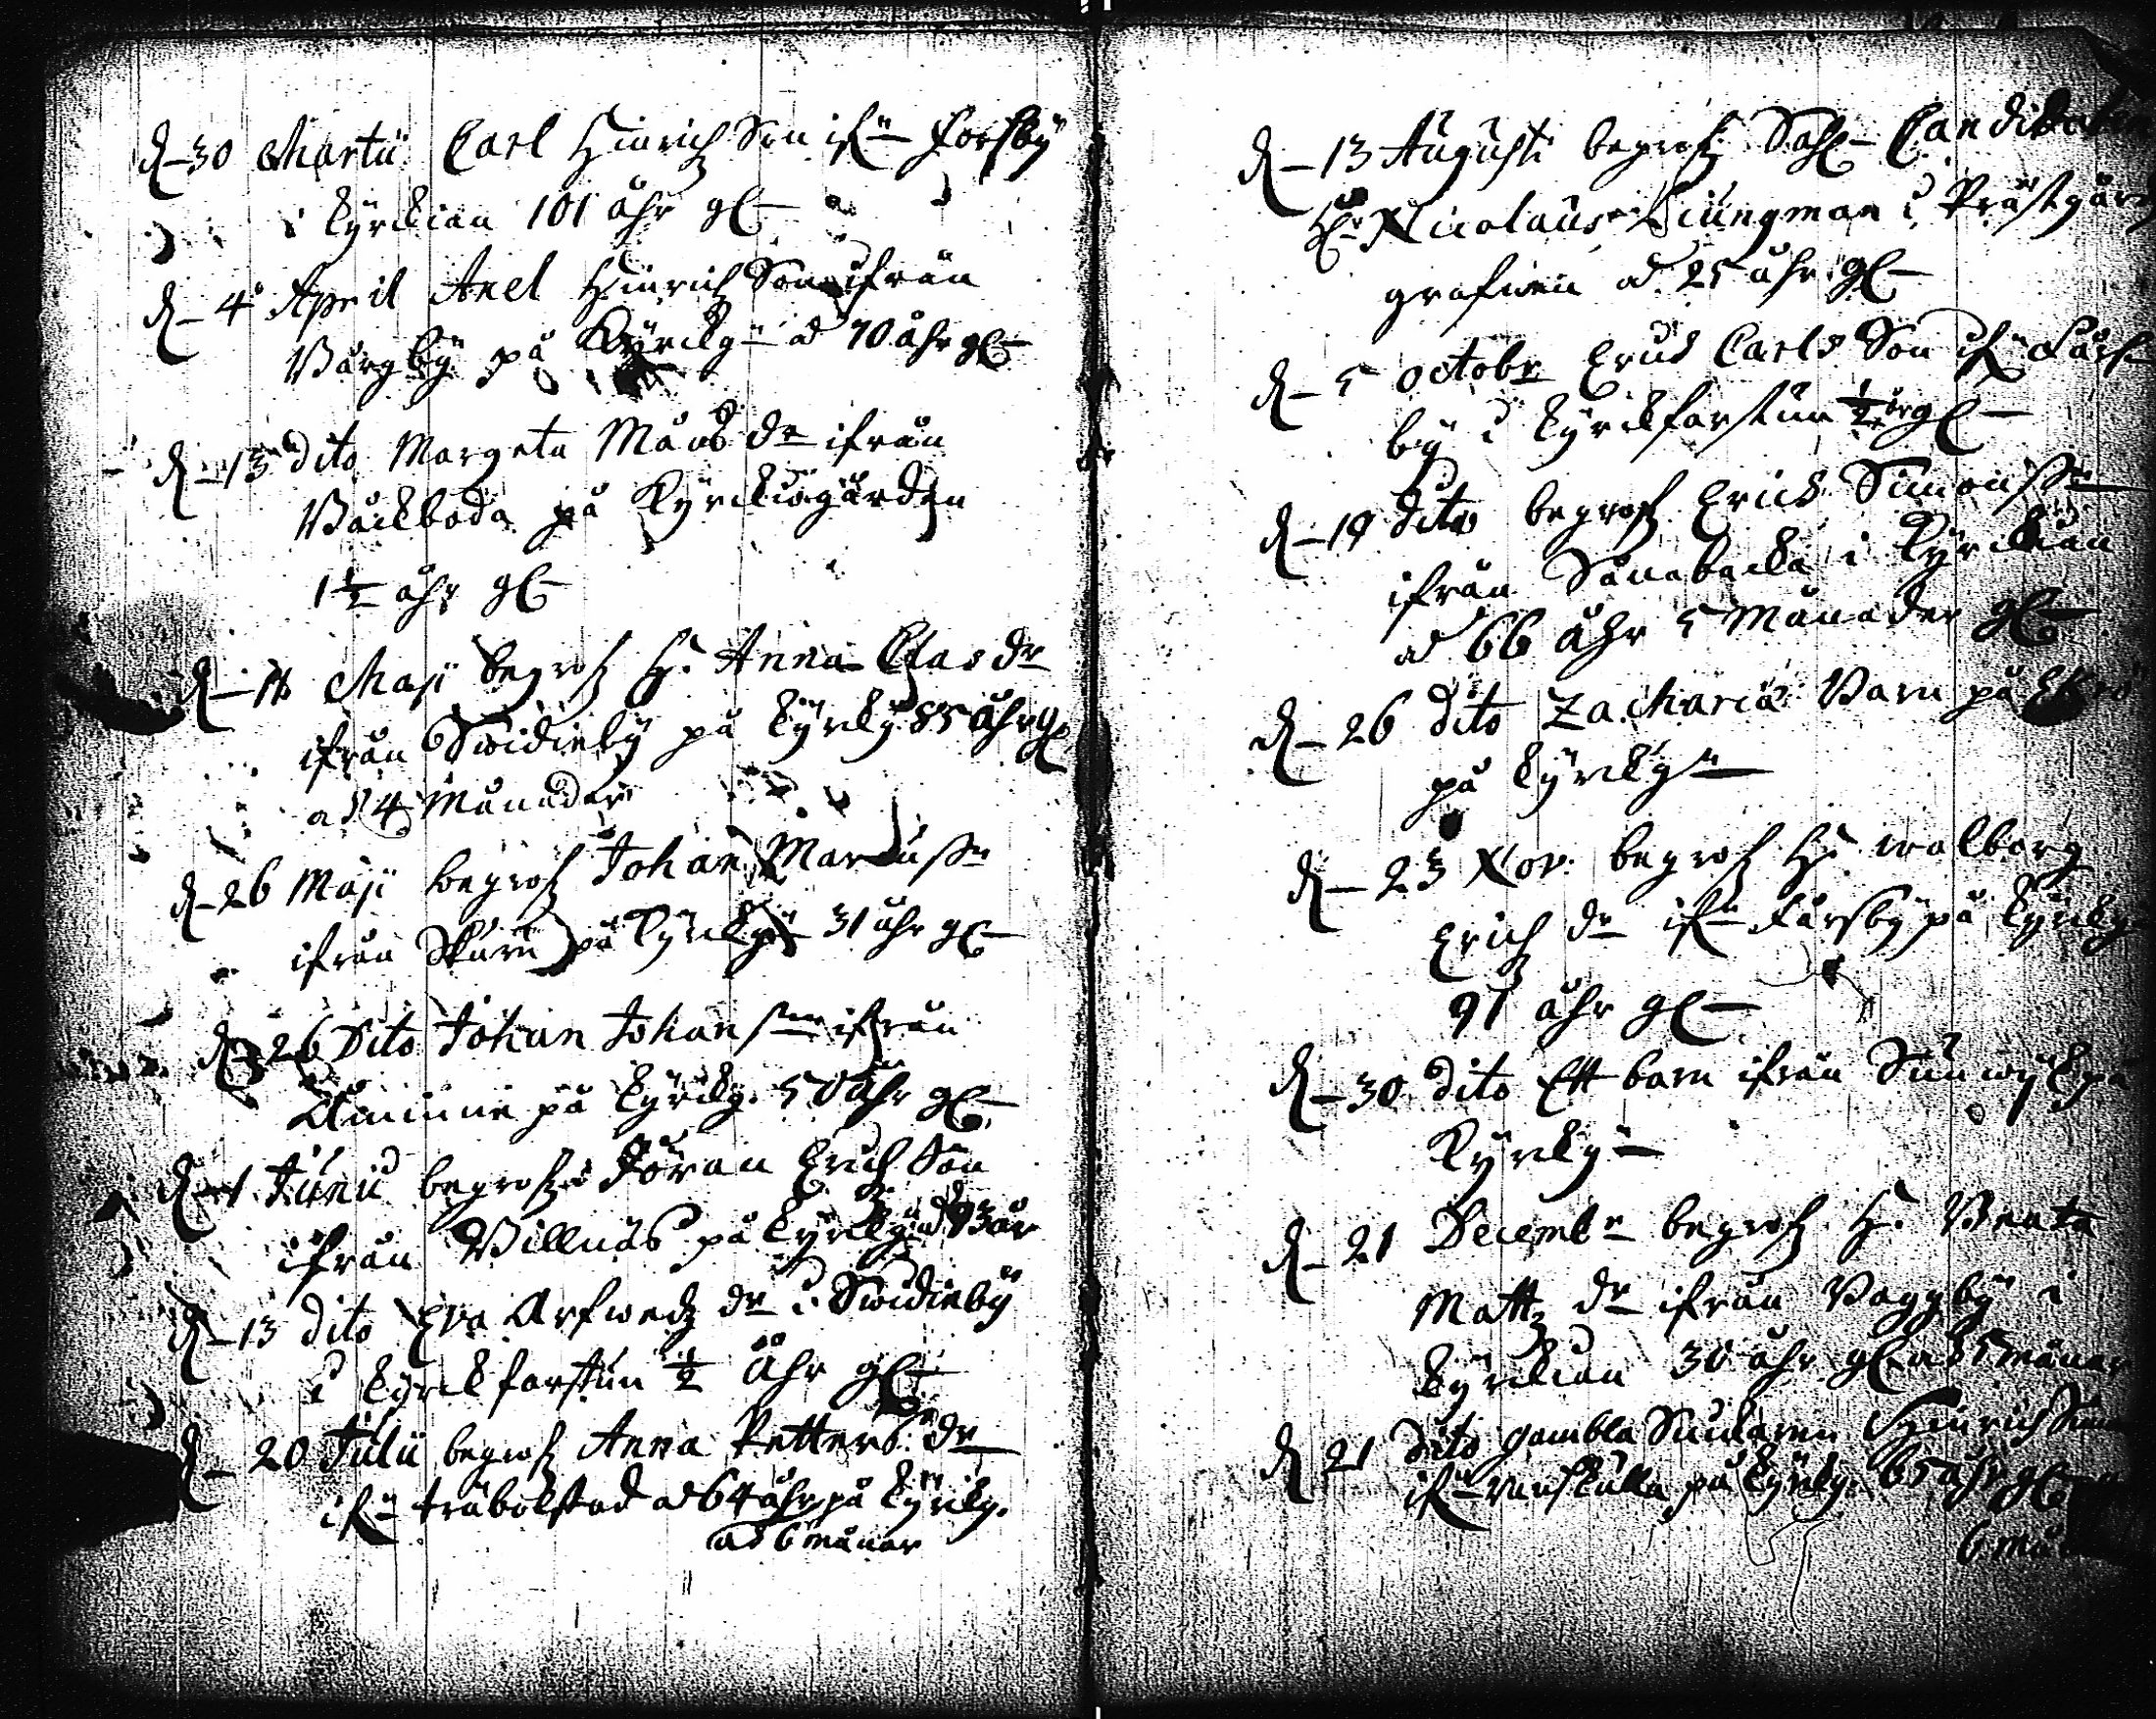 d– 30 Martii Carl Hinrichsson ifrn– Forsby
i kyrckian 101 åhr gl–
d– 4 April Axel Hinrichsson ifrån
Wårgby på Kyrckg– ad 70 åhr gl–
d– 13 dito Margeta Måns dr ifrån
Båckboda på Kyrckiogården
1½ åhr gl–
Maji begrofz H. Anna Clas dr
ifrån Swidieby på kyrkg. 85 åhr gl
ad 4 Månader
d– 26 Maji begrofz Johan Marcusn
ifrån på kyrckg– 31 åhr gl–
d– 26 Dito Johan Johansson ifrån
Åminne på kyrckg. 50 åhr gl–
d– 1 Junii begrofz Jöran Erichson
ifrån Willnäs på kyrckg. ad 93 åhr
d– 13 dito Eva Arfwedz dr i Swidieby
i kyrckforstun ½ åhr gl–
d– 20 Julii begrofz Anna Petters dr
ifrn– träbolstad ad 64 åhr på kyrckg.
ad 6 månar
d– 13 Augusti begrofz Sahl–
Hr Nicolaus Liungman i Prästgårdz
grafwen ad 25 åhr gl–
d– 5 octobr Carls Son ifrn Fårs
by i kyrckforstun ½ år gl–
d– 19 dito begrofz Erick Simonssn
ifrån Sånabacka i Kyrckian
ad 66 åhr 5 Månader gl–
d– 26 dito Zacharia Barn på
på kyrckg–
d– 23 Nov. begrofz H. walborg
Erichz dr ifrn– Fårsby på kyrckg–
91 åhr gl–
d– 30 dito Ett barn ifrån Sunwyk på
Kyrkg–
d– 21 Decembr begrofz H. Beata
Mattz dr ifrån Baggby i
kyrckian 36 åhr gl– ad 5 månar
d 21 dito gambla Hinrich
ifrn– på kyrkg. 65 åhr gl–
6 må